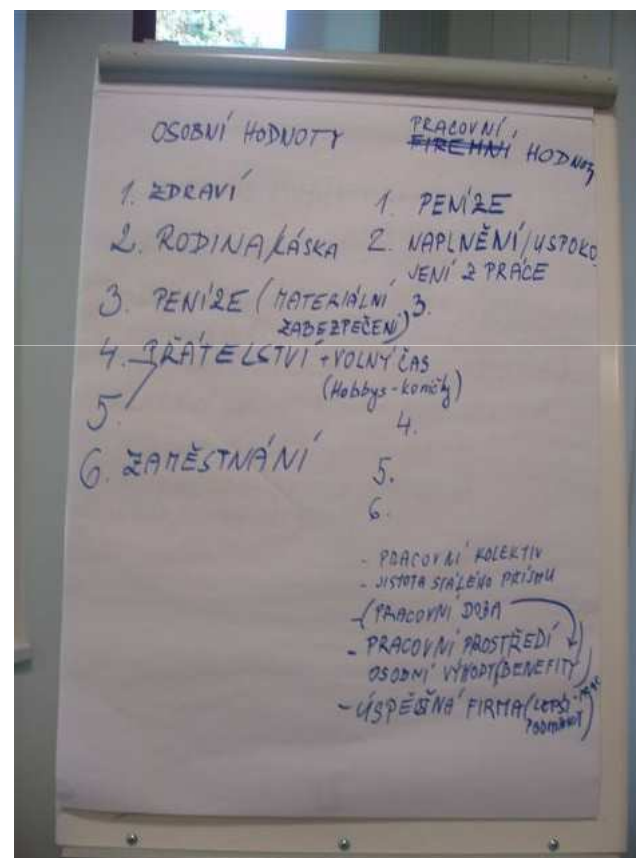 OSOBNÍ HODNOTY
1. ZDRAVÍ
2. RODINA/LÁSKA
3. PENÍZE (MATERIÁLNÍ
ZABEZPEČENÍ)
4. PŘÁTELSTVÍ + VOLNÝ ČAS
(Hobbys - koníčky)
5.
6. ZAMĚSTNÁNÍ
PRACOVNÍ
FIREMNÍ HODNOTY
1. PENÍZE
2. NAPLNĚNÍ/USPOKO
JENÍ Z PRÁCE
3.
4.
5.
6.
- PRACOVNÍ KOLEKTIV
- JISTOTA STÁLÉHO PŘÍJMU
- PRACOVNÍ DOBA
- PRACOVNÍ PROSTŘEDÍ
OSOBNÍ VÝHODY/BENEFITY
- ÚSPĚŠNÁ FIRMA (LEPŠÍ
PODMÍNKY)